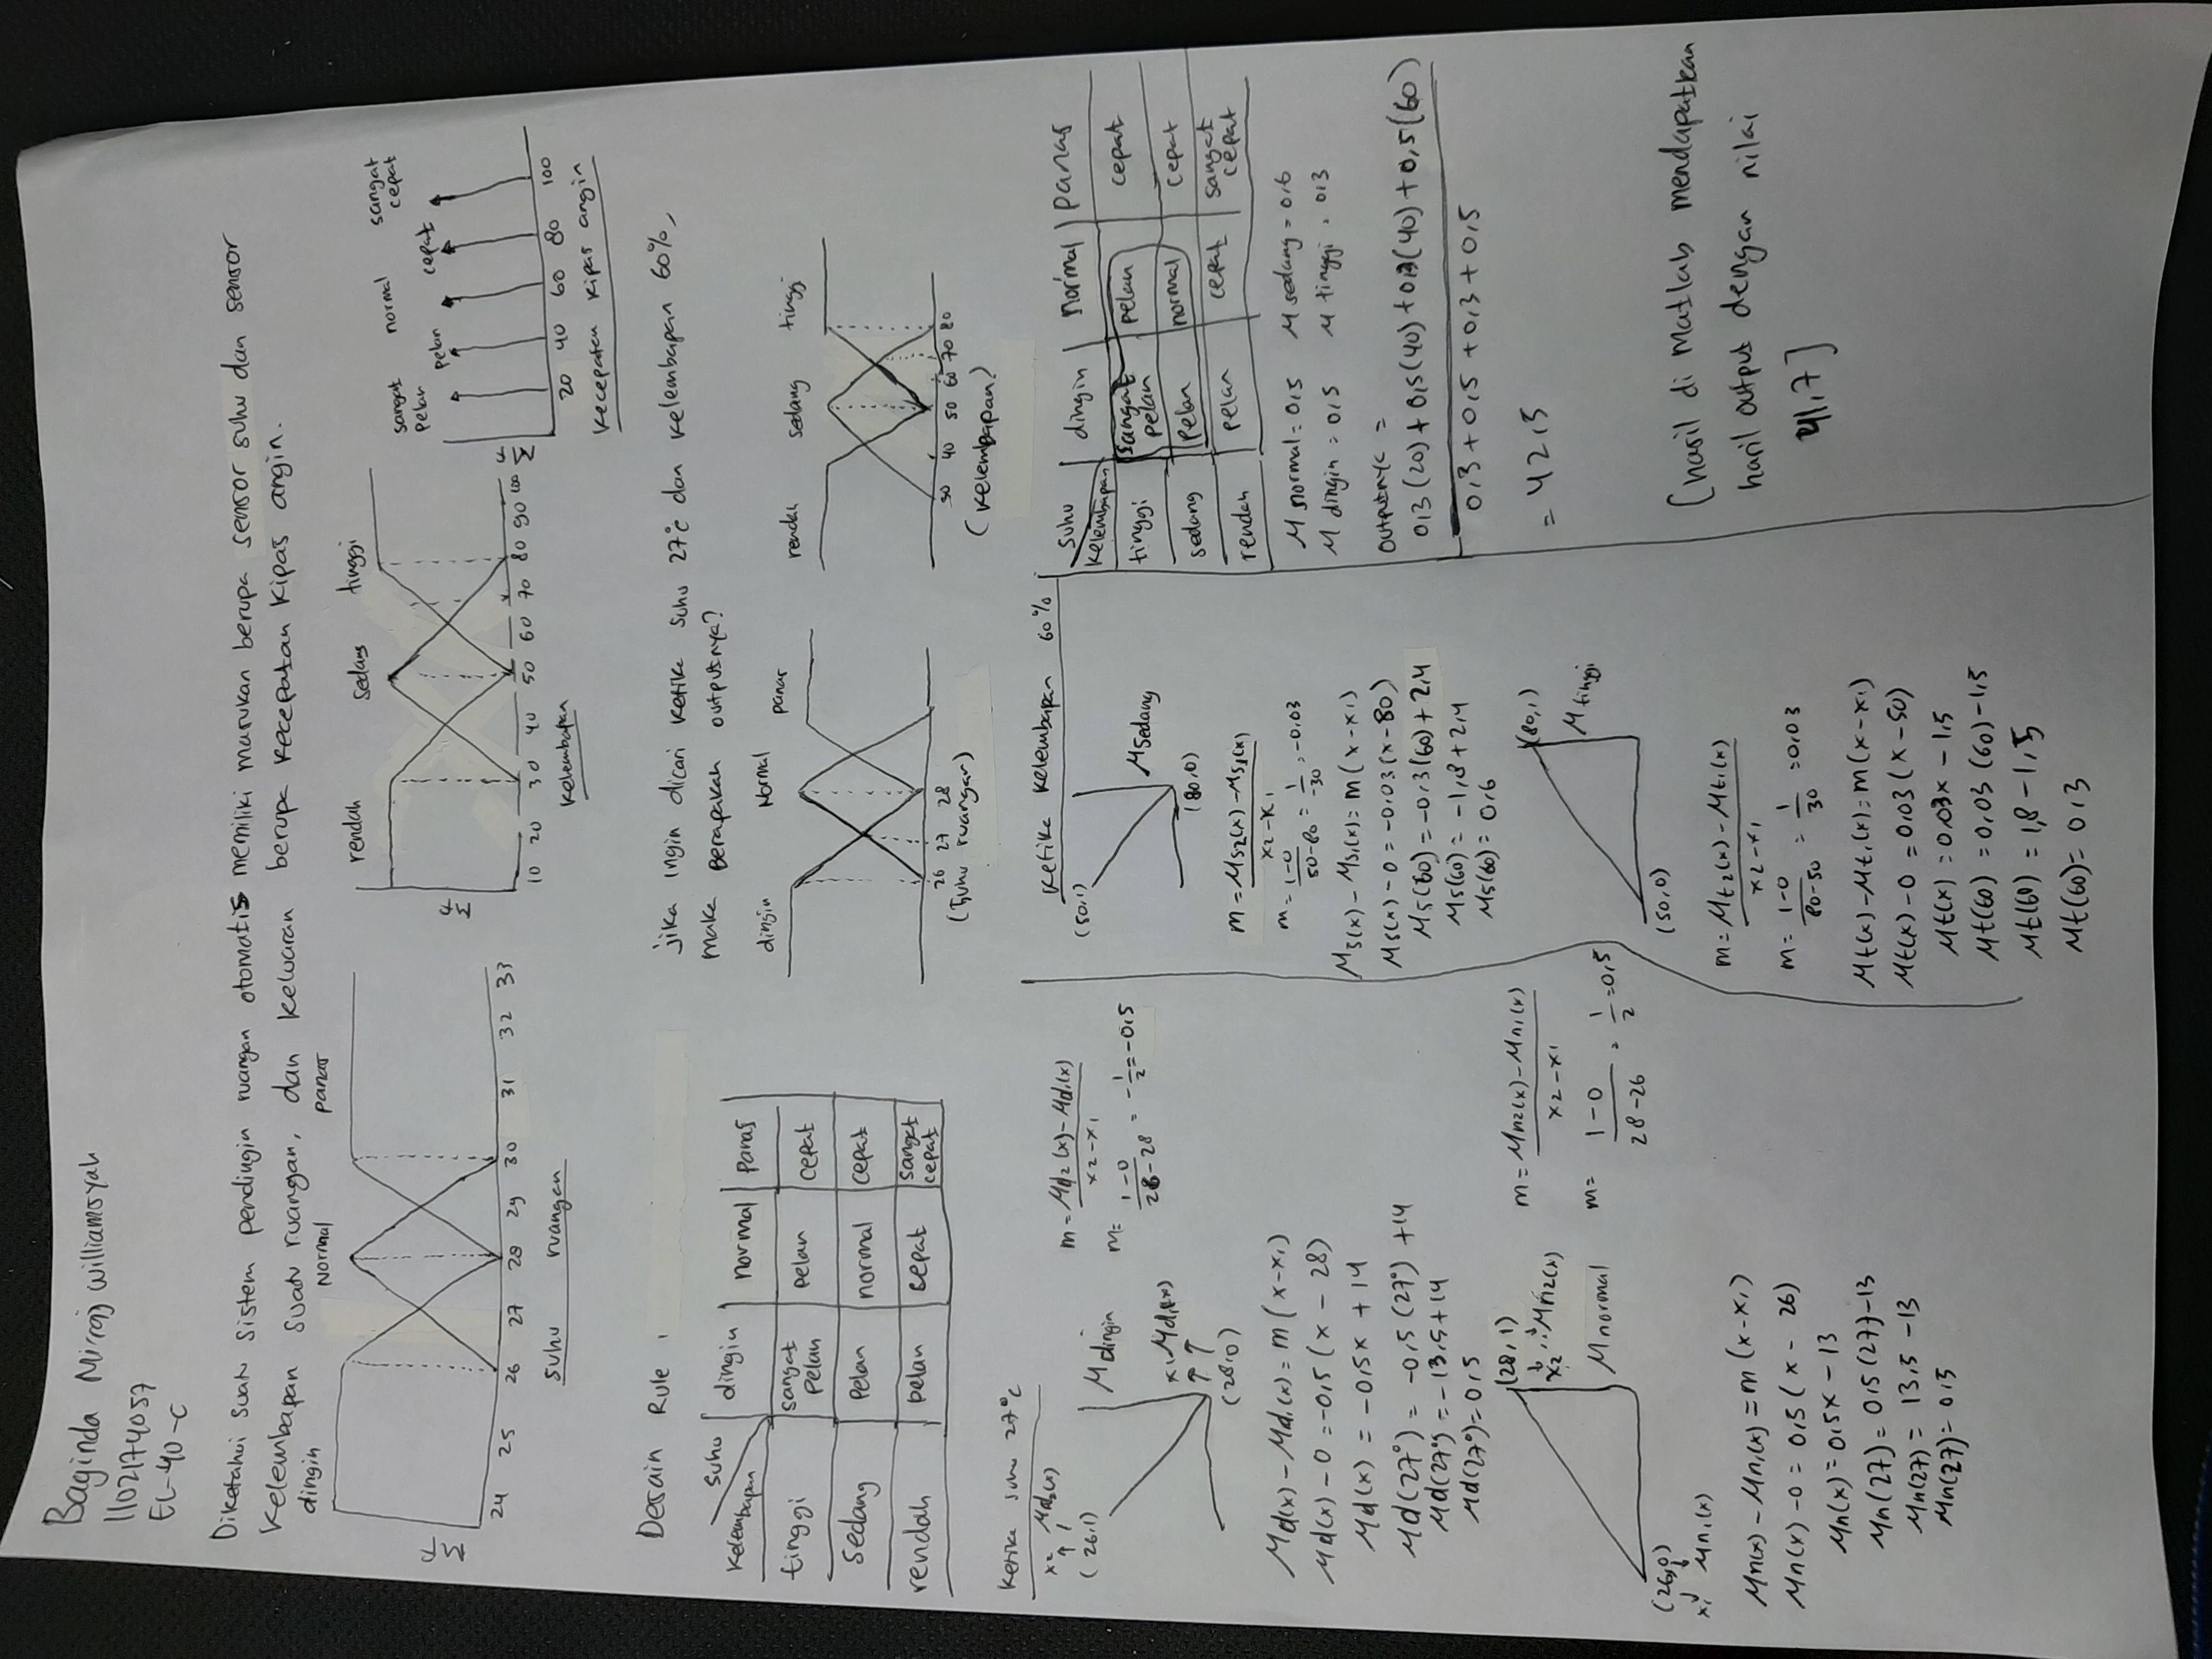 Baginda Mi'raj Williamsyah
1102174057
EL-40-C
Diketahui suatu sistem pendingin ruangan otomatis memiliki masukan berupa sensor suhu dan sensor
kelembapan suatu ruangan, dan keluaran berupa kecepatan kipas angin.
dingin Normal panas
MF
24 25 26 27 28 29 30 31 32 33
suhu ruangan
rendah sedang tinggi
MF
10 20 30 40 50 60 70 80 90 100
kelembapan
sangat pelan pelan normal cepat sangat cepat
MF
20 40 60 80 100
kecepatan kipas angin
Desain Rule
suhu dingin normal panas
kelembapan
tinggi sangat pelan pelan cepat
sedang pelan normal cepat
rendah pelan cepat sangat cepat
jika ingin dicari ketika suhu 27°c dan kelembapan 60%,
maka berapakah outputnya?
dingin Normal panas
26 27 28
(Suhu ruangan)
rendah sedang tinggi
30 40 50 60 70 80
(kelembapan)
ketika suhu 27°c
x2 Md2(x)
(26,1)
M dingin
x1 Md1(x)
(28,0)
m = Md2(x) - Md1(x) / x2 - x1
m = 1-0 / 26-28 = -1/2 = -0,5
Md(x) - Md1(x) = m(x-x1)
Md(x) - 0 = -0,5(x - 28)
Md(x) = -0,5x + 14
Md(27°) = -0,5(27°) + 14
Md(27°) = -13,5+14
Md(27°) = 0,5
(28,1)
x2 Mn2(x)
M normal
(26,0)
x1 Mn1(x)
m = Mn2(x) - Mn1(x) / x2 - x1
m = 1-0 / 28-26 = 1/2 = 0,5
Mn(x) - Mn1(x) = m(x-x1)
Mn(x) - 0 = 0,5(x - 26)
Mn(x) = 0,5x - 13
Mn(27) = 0,5(27) - 13
Mn(27) = 13,5 - 13
Mn(27) = 0,5
ketika kelembapan 60%
(50,1)
M sedang
(80,0)
m = Ms2(x) - Ms1(x) / x2 - x1
m = 1-0 / 50-80 = 1/-30 = -0,03
Ms(x) - Ms1(x) = m(x-x1)
Ms(x) - 0 = -0,03(x-80)
Ms(60) = -0,3(60) + 2,4
Ms(60) = -1,8 + 2,4
Ms(60) = 0,6
(80,1)
M tinggi
(50,0)
m = Mt2(x) - Mt1(x) / x2 - x1
m = 1-0 / 80-50 = 1/30 = 0,03
Mt(x) - Mt1(x) = m(x-x1)
Mt(x) - 0 = 0,03(x-50)
Mt(x) = 0,03x - 1,5
Mt(60) = 0,03(60) - 1,5
Mt(60) = 1,8 - 1,5
Mt(60) = 0,3
suhu dingin normal panas
kelembapan
tinggi sangat pelan pelan cepat
sedang pelan normal cepat
rendah pelan cepat sangat cepat
M normal = 0,5 M sedang = 0,6
M dingin = 0,5 M tinggi = 0,3
outputnya =
0,3(20) + 0,5(40) + 0,3(40) + 0,5(60)
0,3 + 0,5 + 0,3 + 0,5
= 42,5
[hasil di Matlab mendapatkan
hasil output dengan nilai
41,7]